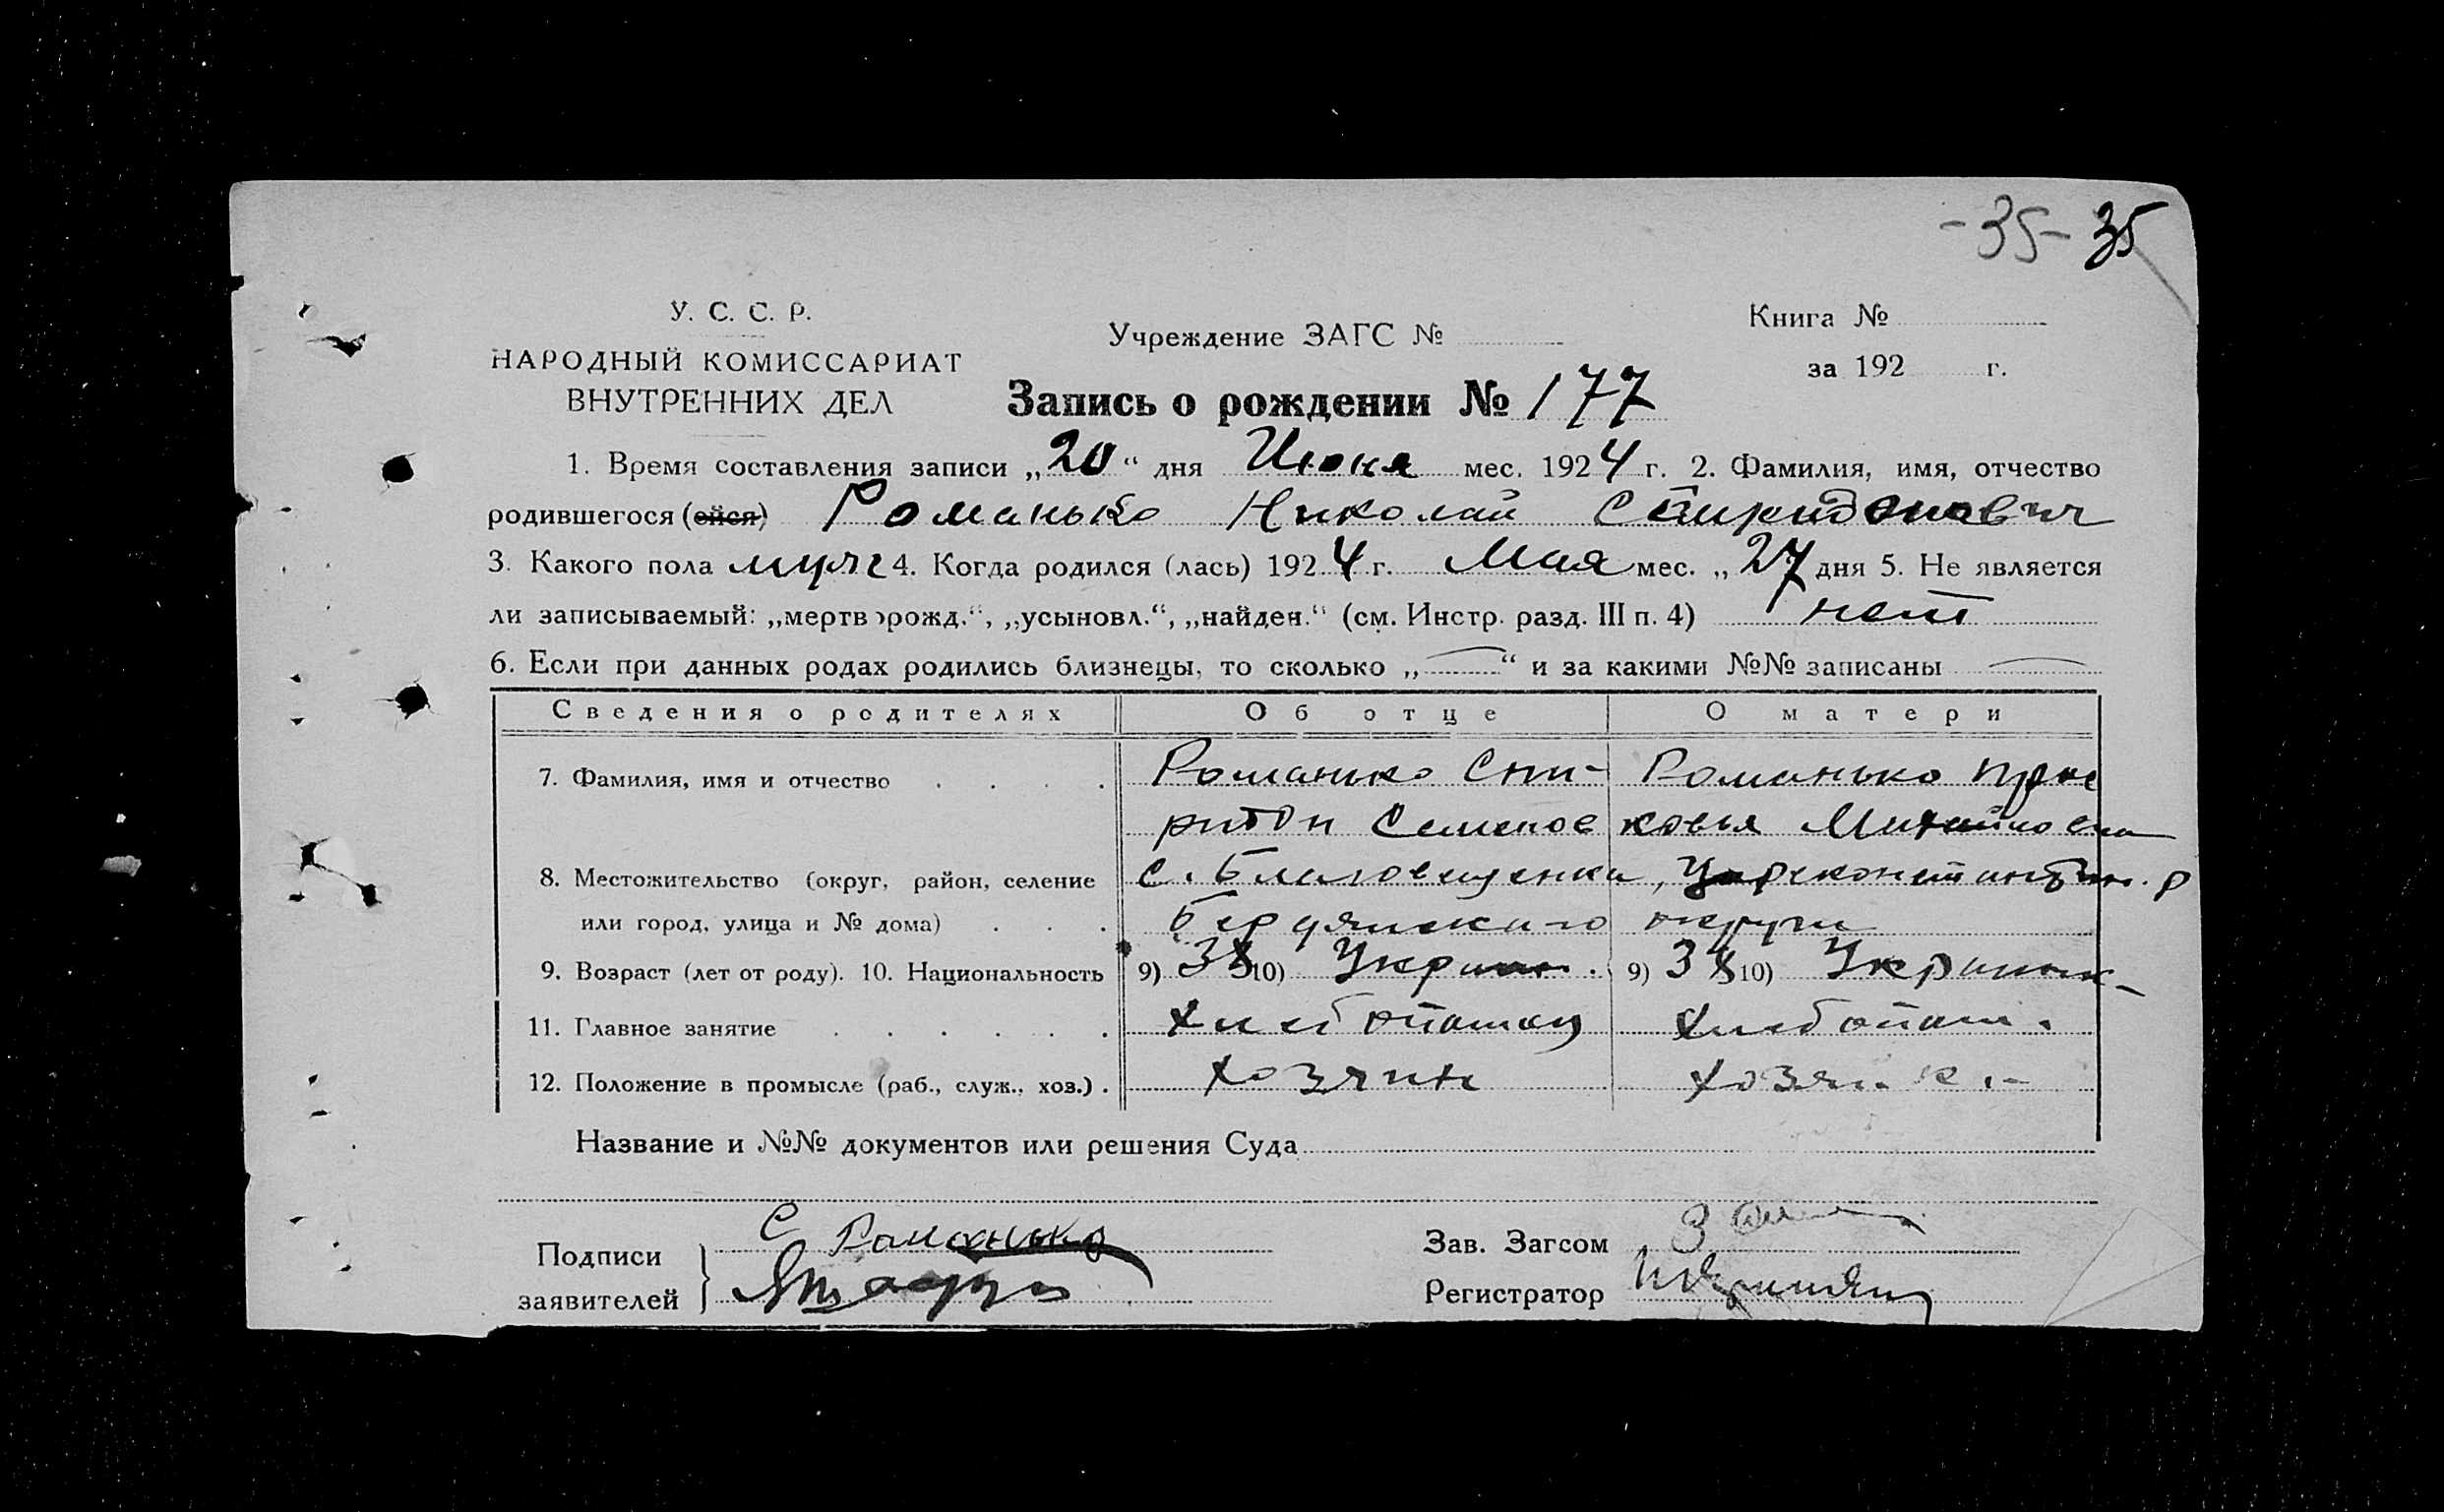 -35- 35
У. С. С. Р.
НАРОДНЫЙ КОМИССАРИАТ
ВНУТРЕННИХ ДЕЛ
Учреждение ЗАГС №
Книга №
за 192 г.
Запись о рождении № 177
1. Время составления записи „20“ дня Июня мес. 1924 г. 2. Фамилия, имя, отчество
родившегося (ейся) Романько Николай Спиридонович
3. Какого пола муж 4. Когда родился (лась) 1924 г. Мая мес. „27 дня 5. Не является
ли записываемый: „мертворожд.“, „усыновл.“, „найден.“ (см. Инстр. разд. III п. 4) нет
6. Если при данных родах родились близнецы, то сколько „—“ и за какими №№ записаны —
Сведения о родителях Об отце О матери
7. Фамилия, имя и отчество Романько Спи- Романько Прас
ридон Семенов ковья Михайловна
8. Местожительство (округ, район, селение с. Благовещенка, Цареконстантин. р
или город, улица и № дома) Бердянского округа
9. Возраст (лет от роду). 10. Национальность 9) 38 10) Украин. 9) 38 10) Украинк-
11. Главное занятие хлебопашец хлебопаш.
12. Положение в промысле (раб., служ., хоз.) хозяин хозяйка
Название и №№ документов или решения Суда
Подписи
заявителей
С Романько
Зав. Загсом
Регистратор